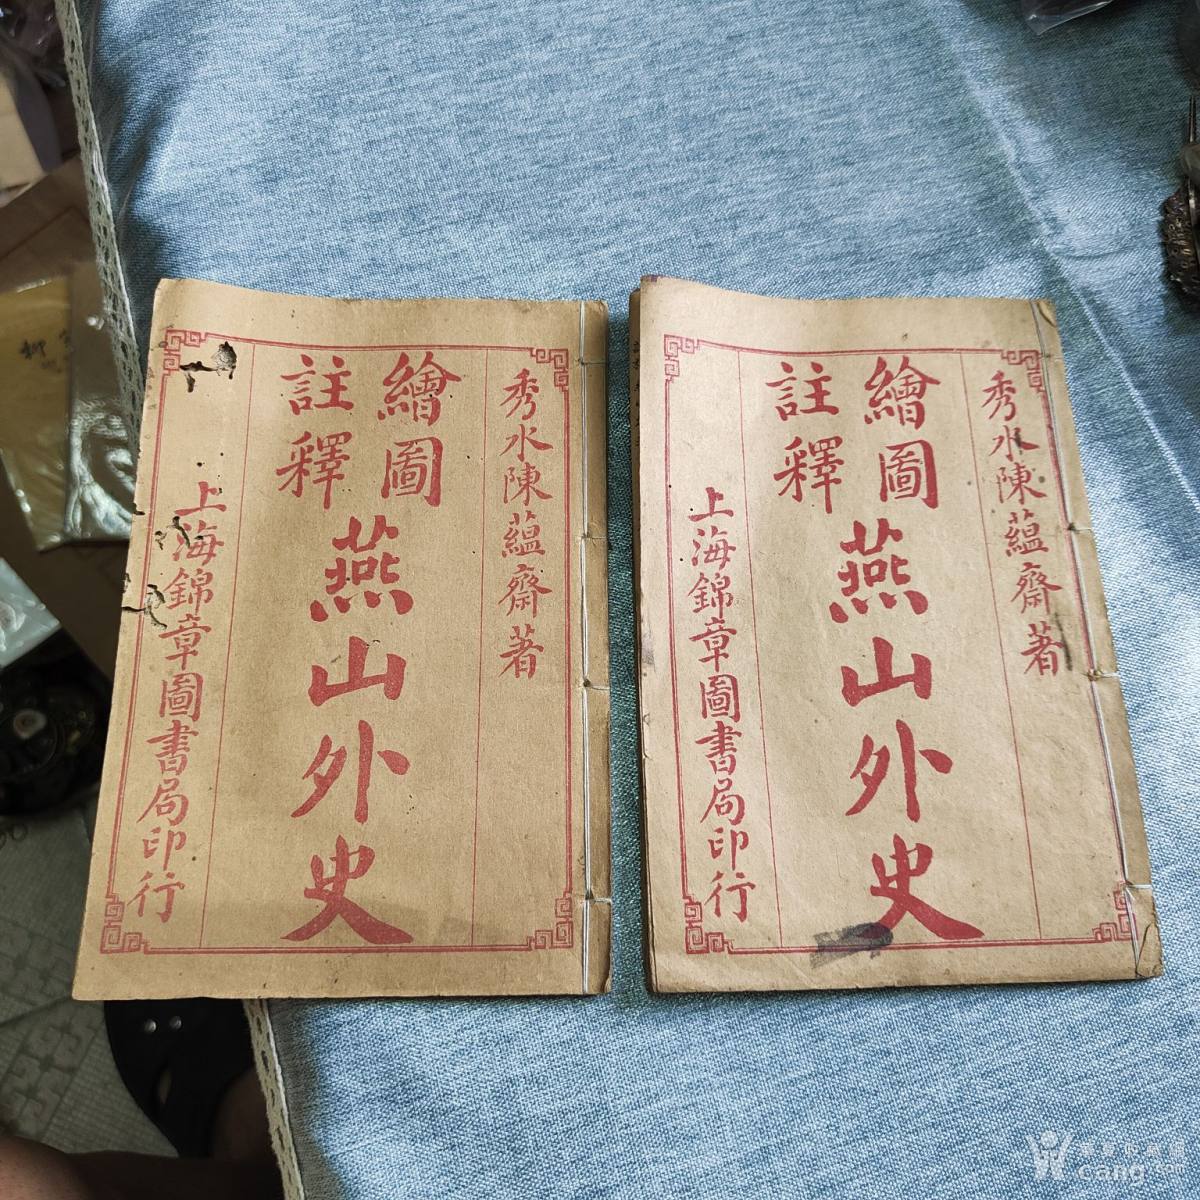 秀水陳蘊齋著
繪圖
註釋
燕山外史
上海錦章圖書局印行
秀水陳蘊齋著
繪圖
註釋
燕山外史
上海錦章圖書局印行
cang.com